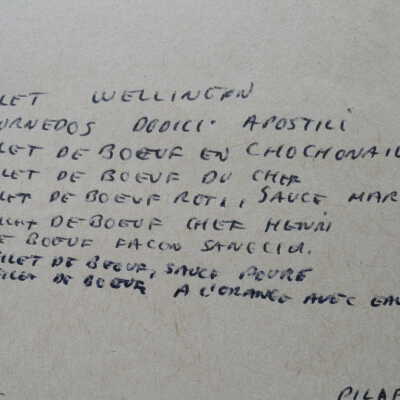 LET WELLINGEN
URNEDOS DODICI APOSTILI
LET DE BOEUF EN CHOCHONAIL
LET DE BOEUF DU CHEF
LET DE BOEUF ROTI, SAUCE MAR
LLET DE BOEUF CHEF HENRI
E BOEUF FACON SANGLIER
ILLET DE BOEUF, SAUCE POIVRE
ILLET DE BOEUF A L'ORANGE AVEC EAU
PILAF